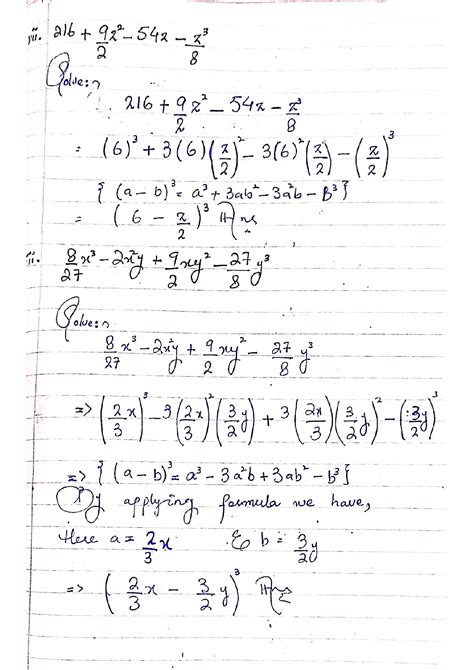 viii. 216 + 9z²/2 - 54z - z³/8
Solve:
216 + 9/2 z² - 54z - z³/8
= (6)³ + 3(6)(z/2)² - 3(6)²(z/2) - (z/2)³
{ (a-b)³ = a³ + 3ab² - 3a²b - B³ }
= (6 - z/2)³ Ans
8/27 x³ - 2x²y + 9/2 xy² - 27/8 y³
Solve:
8/27 x³ - 2x²y + 9/2 xy² - 27/8 y³
=> (2/3 x)³ - 3(2x/3)²(3/2 y) + 3(2x/3)(3/2 y)² - (3y/2)³
=> { (a-b)³ = a³ - 3a²b + 3ab² - b³ }
By applying formula we have,
Here a = 2/3 x & b = 3/2 y
=> (2/3 x - 3/2 y)³ Ans